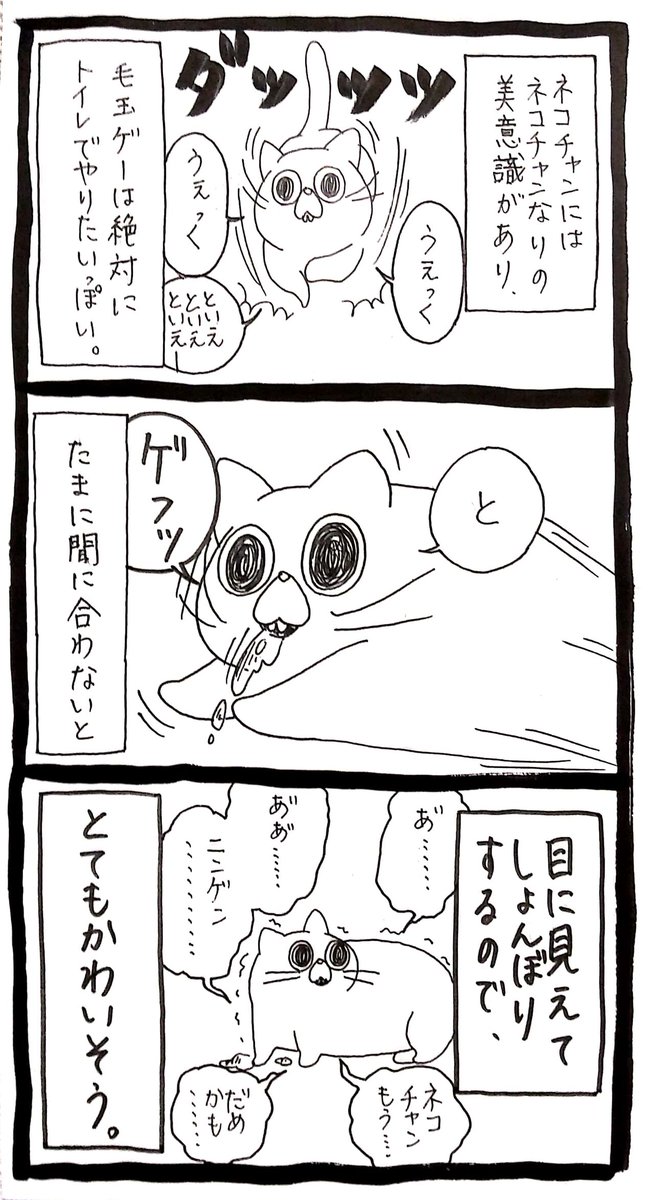 ネコチャンには
ネコチャンなりの
美意識があり、
ダッッッ
うえっく
うえっく
といえ
といえ
といえ
毛玉ゲーは絶対に
トイレでやりたいっぽい。
と
ゲフッ
たまに間に合わないと
目に見えて
しょんぼり
するので、
あ゛……
あ゛あ゛……
ニンゲン
…………
ネコ
チャン
もう……
だめ
かも
……
とてもかわいそう。